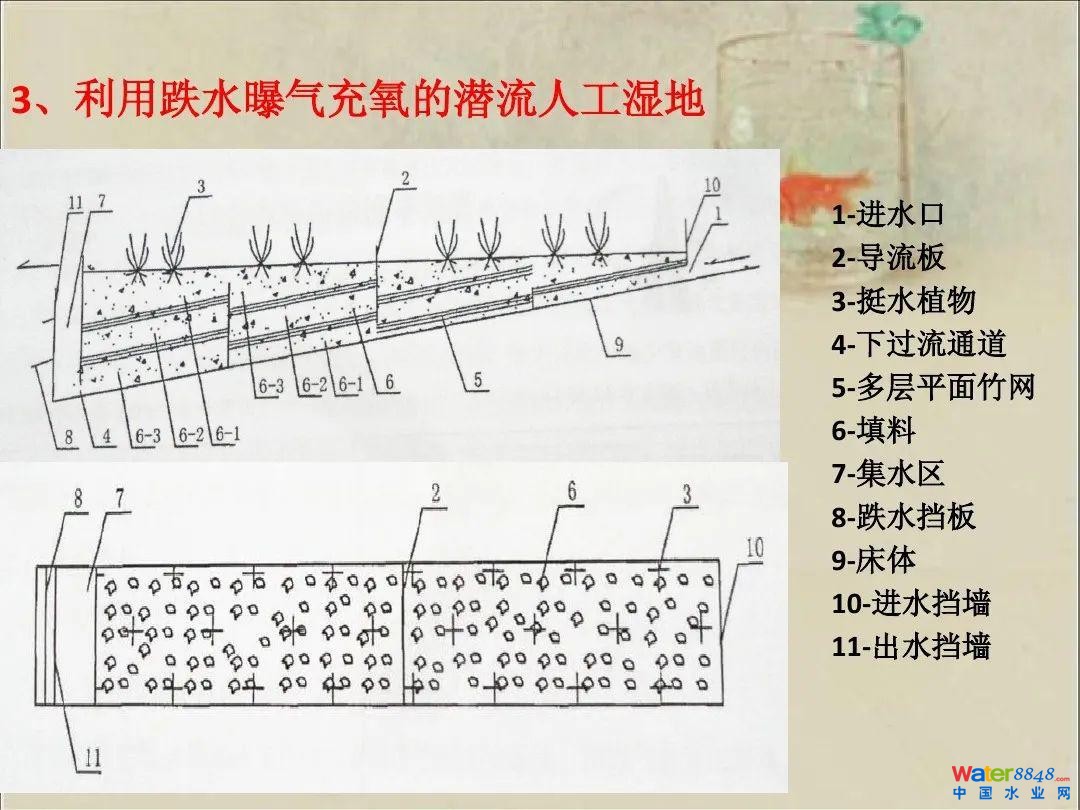 3、利用跌水曝气充氧的潜流人工湿地
11
7
3
2
10
1
9
5
6
6-1
6-2
6-3
8
4
6-3
6-2
6-1
8
7
2
6
3
10
11
1-进水口
2-导流板
3-挺水植物
4-下过流通道
5-多层平面竹网
6-填料
7-集水区
8-跌水挡板
9-床体
10-进水挡墙
11-出水挡墙
Water8848.com
中国水业网